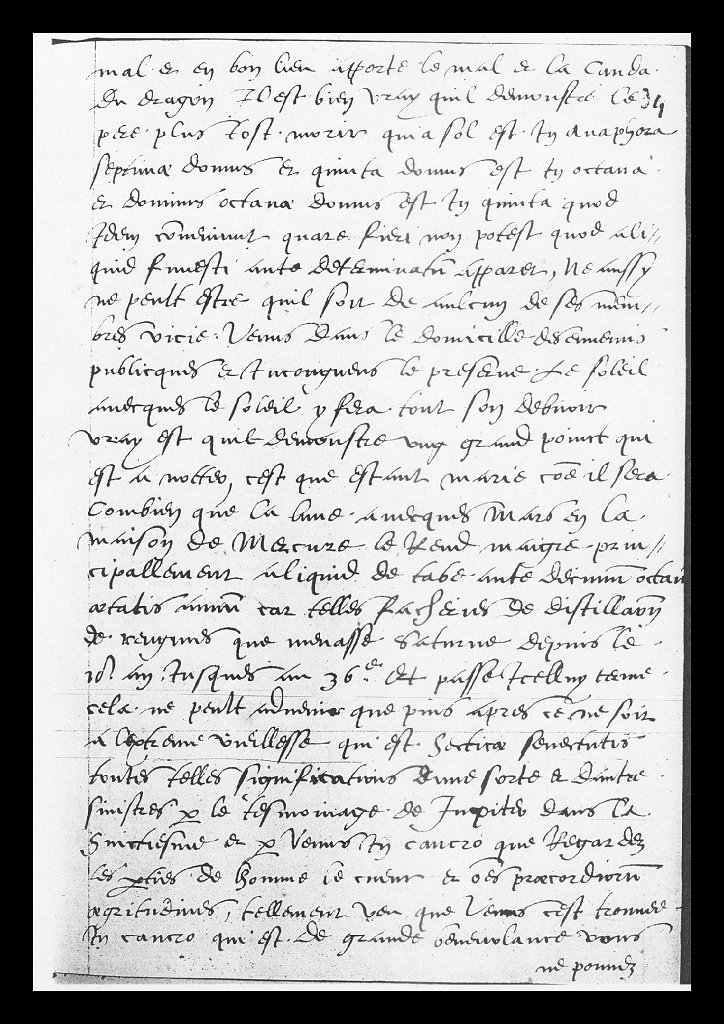 mal et en bon lieu apporte le mal et la Cauda
du dragon Il est bien vray quil demonstre le
34
pere plus tost morir quia sol est In anaphora
septimæ domus et quinta domus est In octaua
et dominus octauæ domus est In quinta quod
Idem cōminiut quare fieri non potest quod ali//
quid funesti ante determinatū apparet, Ne aussy
ne peult estre quil soit de aulcun de ses mem//
bres vicie. Venus dans le domicille des ennemis
publicques et Incongneus le preserue. Le soleil
auecques le soleil y fera tout son debuoir
vray est quil demonstre vng grand poinct qui
est a notter, cest que estant marie cōe il sera
Combien que la lune auecques Mars en la
maison de Mercure le Rend maigre prin//
cipallement aliquid de tabe ante decimum octau
ætatis annū car telles facheries de distillation
de reugmes que menasse Saturne depuis le
18. an Iusques au 36.e Et passe Icelluy terme
cela ne peult aduenir que puis apres ce ne soit
a lextreme vieillesse qui est hecticæ senectutis
toutes telles significations dune sorte et daultre
sinistres p le tesmoinage de Iupiter dans la
huictiesme et p Venus In cancro que Regardez
les pties de homme le cueur et oēs præcordiorū
ægritudines, tellement veu que Venus cest trouuee
In cancro qui est de grande beneuolance vous
ne pouuez